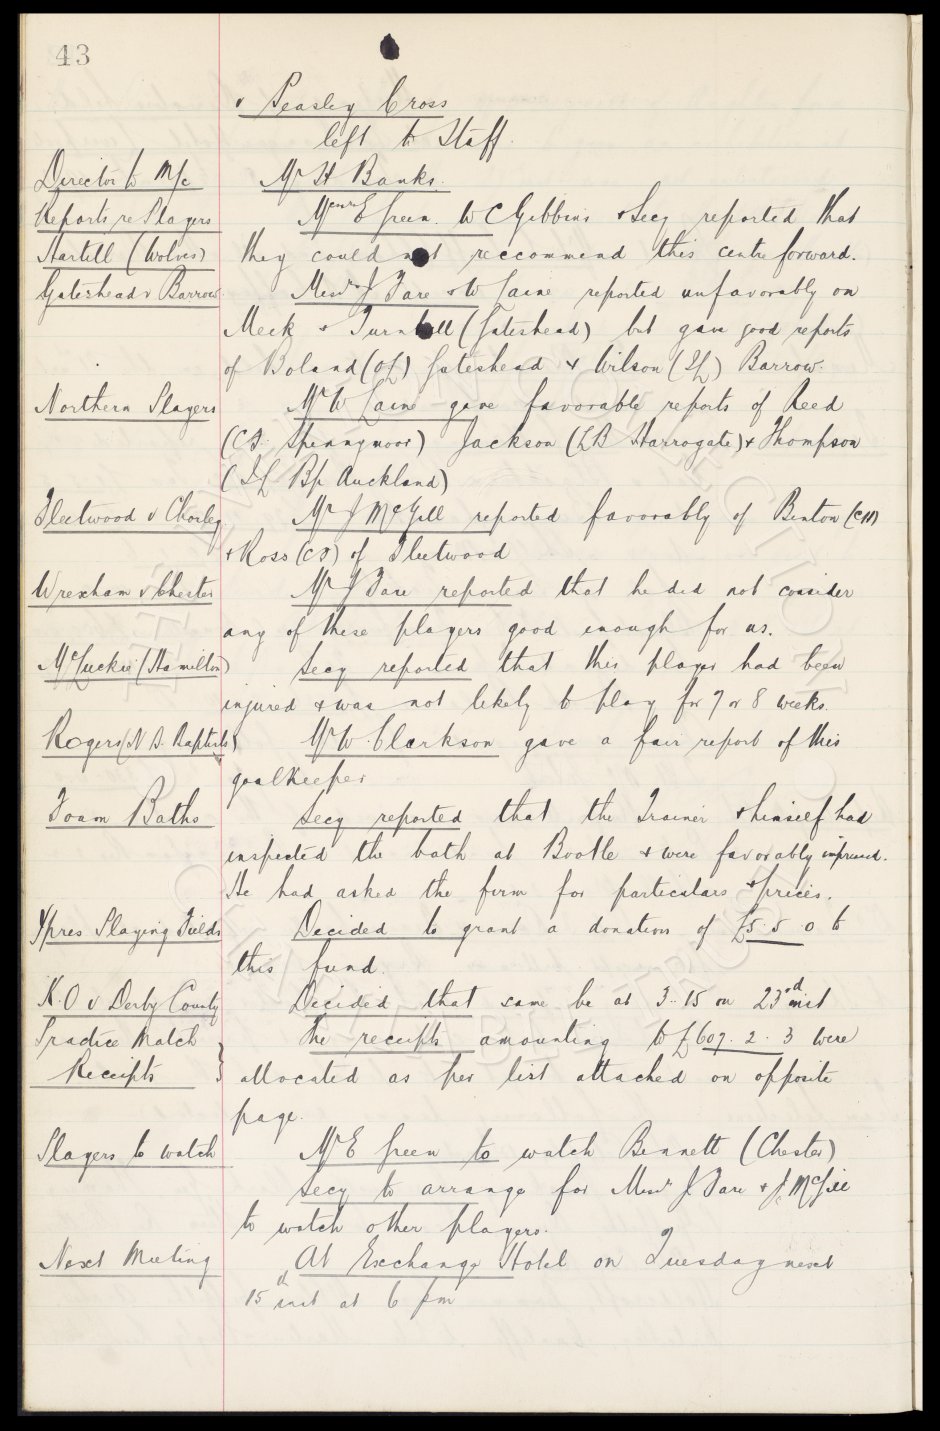 43
v Peasley Cross
left to Staff.
Director to M/c
Mr H Banks.
Reports re Players
Messrs E Green. W C Gibbins & Secy reported that
Hartill (Wolves)
they could not reccommend this centre forward.
Gateshead v Barrow
Messrs J Fare & W Laine reported unfavorably on
Meek & Turnbull (Gateshead) but gave good reports
of Boland (OL) Gateshead & Wilson (IL) Barrow.
Northern Players
Mr W Laine gave favorable reports of Reed
(CF Spennymoor) Jackson (LB Harrogate) & Thompson
(IL Bp Auckland)
Fleetwood v Chorley
Mr J McGill reported favorably of Benton (CH)
& Ross (CF) of Fleetwood
Wrexham v Chester
Mr J Fare reported that he did not consider
any of these players good enough for us.
McLuckie (Hamilton)
Secy reported that this player had been
injured & was not likely to play for 7 or 8 weeks.
Rogers (N.B. Baptists)
Mr W Clarkson gave a fair report of this
goalkeeper
Foam Baths
Secy reported that the Trainer & himself had
inspected the bath at Bootle & were favorably impressed.
He had asked the firm for particulars & prices.
Ypres Playing Fields
Decided to grant a donation of £5.5.0 to
this fund.
K.O v Derby County
Decided that same be at 3.15 on 23rd inst
Practice Match
The receipts amounting to £607.2.3 were
Receipts
allocated as per list attached on opposite
page.
Players to watch
Mr E Green to watch Bennett (Chester)
Secy to arrange for Messrs J Fare & J. McGill
to watch other players.
Next Meeting
At Exchange Hotel on Tuesday next
15th inst at 6 pm